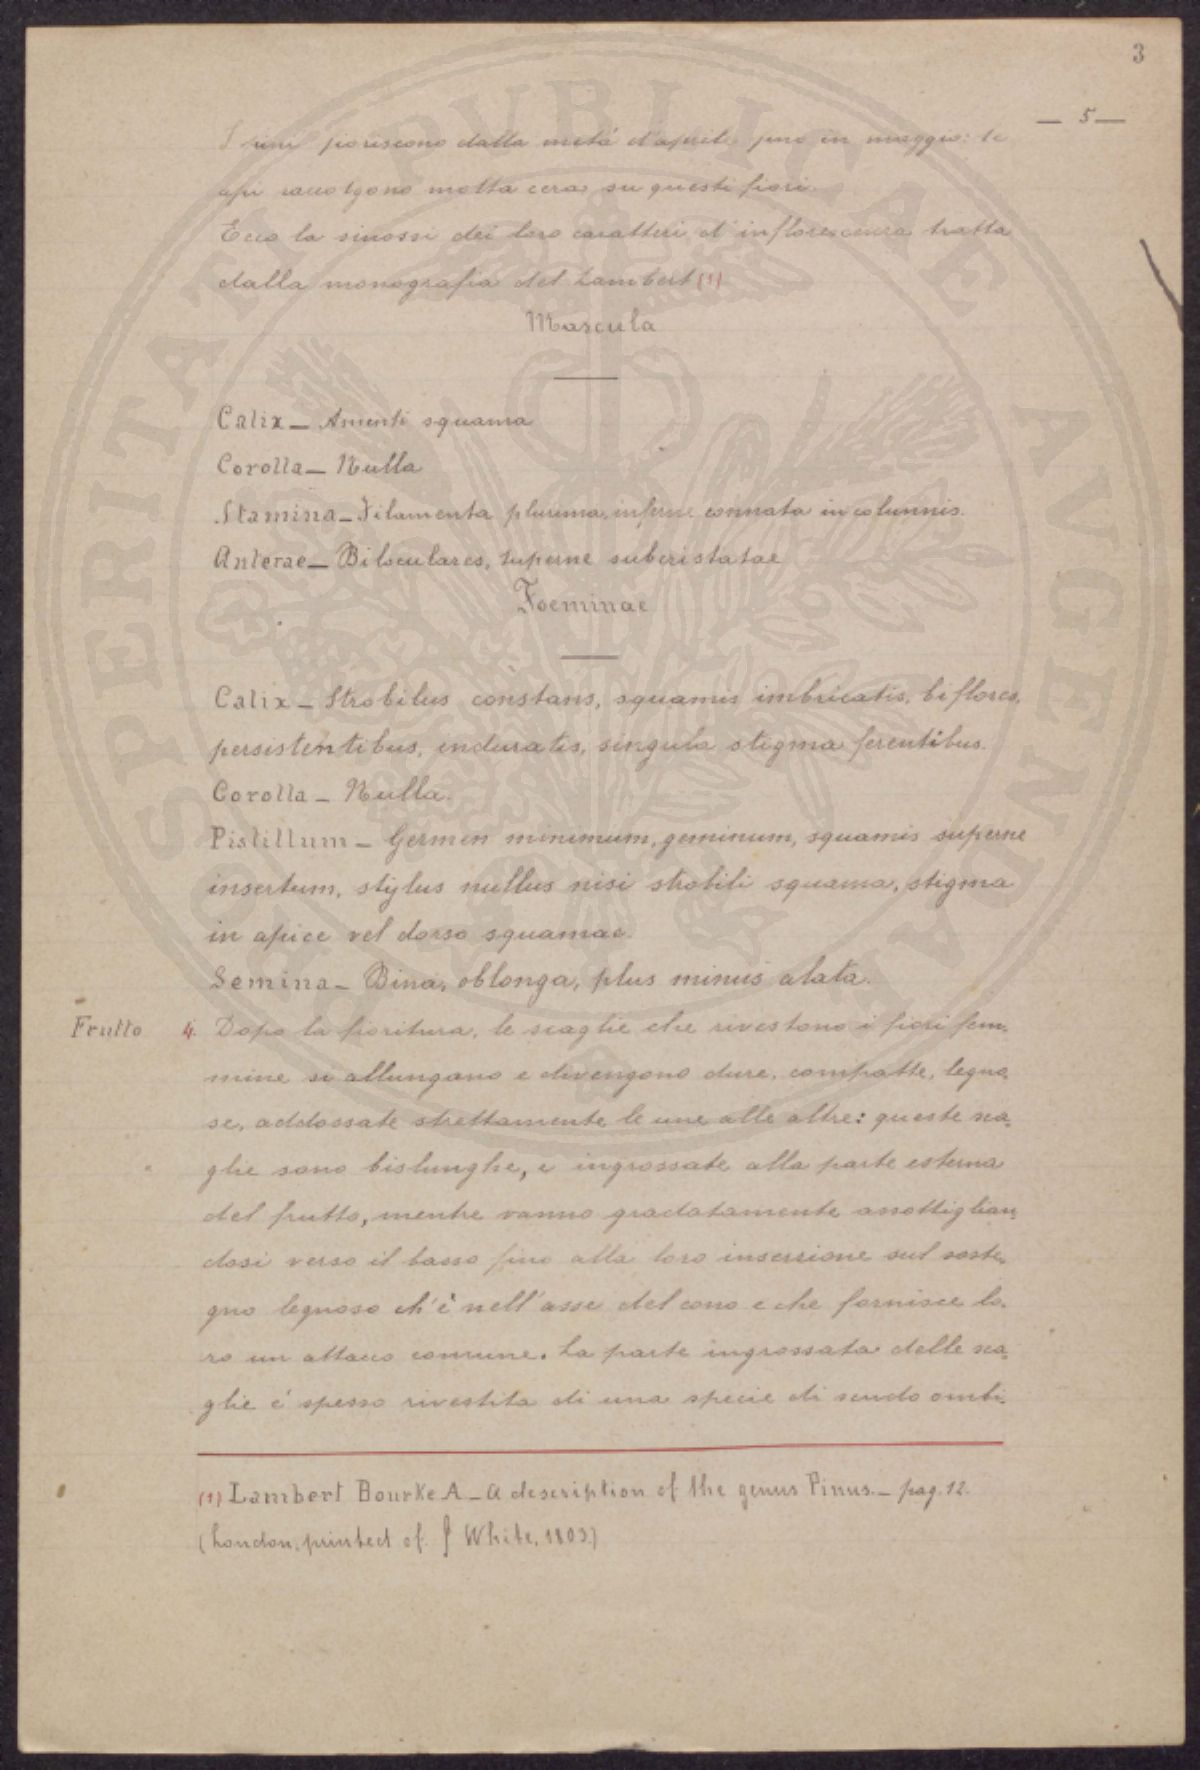 3
— 5 —
I pini fioriscono dalla metá d'aprile fino in maggio: le
api raccolgono molta cera su questi fiori.
Ecco la sinossi dei loro caratteri d'inflorescenza tratta
dalla monografia del Lambert (1)
Mascula
Calix — Amenti squama
Corolla — Nulla
Stamina — Filamenta plurima, inferne connata in columnis.
Anterae — Biloculares, superne subcristatae
Foeminae
Calix — Strobilus constans, squamis imbricatis, biflores,
persistentibus, induratis, singula stigma ferentibus.
Corolla — Nulla.
Pistillum — Germen minimum, geminum, squamis superne
insertum, stylus nullus nisi strobili squama, stigma
in apice vel dorso squamae.
Semina — Bina, oblonga, plus minus alata.
Frutto 4. Dopo la fioritura, le scaglie che rivestono i fiori fem-
mine si allungano e divengono dure, compatte, legno-
se, addossate strettamente le une alle altre: queste sca-
glie sono bislunghe, e ingrossate alla parte esterna
del frutto, mentre vanno gradatamente assottiglian-
dosi verso il basso fino alla loro inserzione sul soste-
gno legnoso ch'è nell'asse del cono e che fornisce lo-
ro un attacco comune. La parte ingrossata delle sca-
glie é spesso rivestita di una specie di scudo ombi-
(1) Lambert Bourke A — A description of the genus Pinus. — pag. 12.
(London, printed of. J White, 1803)
PERITATI PVBLICAE AVGENDAE